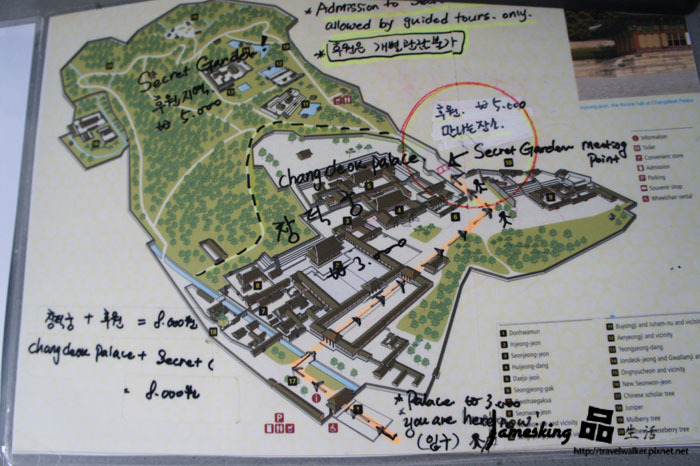 * Admission to
allowed by guided tours. only.
* 후원은 개별관람불가
Secret Garden!
후원지역
₩ 5.000
후원. ₩ 5.000
만나는장소.
Secret Garden meeting
Point
Changdeok Palace
창덕궁
₩ 3.000
Information
Toilet
Convenient store
Admission
Parking
Souvenir shop
Wheelchair rental
창덕궁 + 후원 = 8.000원
changdeok Palace + Secret
= 8.000
* Palace ₩ 3.000
* you are here now!
(입구)
1 Donhwamun
2 Injeong-jeon
3 Seonjeong-jeon
4 Huijeong-dang
5 Daejo-jeon
Buyongji and Juham-nu and vicinity
Aeryeongji and vicinity
Yeongyeong-dang
Jondeok-jeong and
Ongnyucheon and vicinity
New Seonwon-jeon
Chinese scholar tree
Juniper
Mulberry tree
Jamesking 品 生活
http://travelwalker.pixnet.net